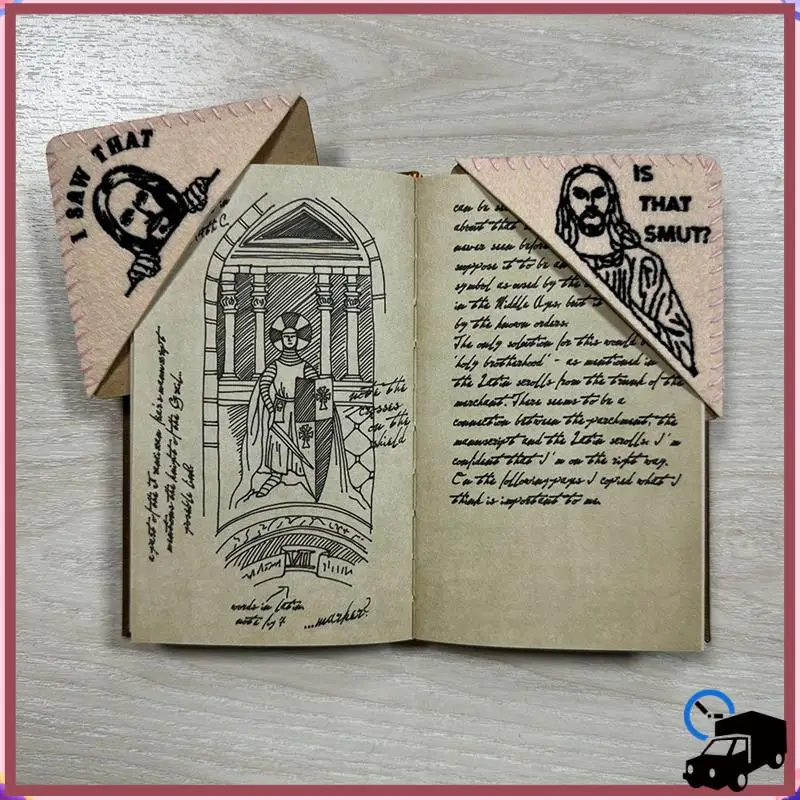 I SAW THAT
IS
THAT
SMUT?
note the
crosses
on the
shield
a part of the
mentions the height of the Grail
possible link
VII
words in latin
...marker?
can be
about that
never seen before
suppose it to be an
symbol as used by the
in the Middle Ages, but
by the known orders.
The only solution for this would
'holy brotherhood' - as mentioned in
the Latin scrolls from the trunk of the
merchant. There seems to be a
connection between the parchment, the
manuscript and the Latin scrolls. I'm
confident that I'm on the right way.
On the following pages I copied what I
think is important to me.